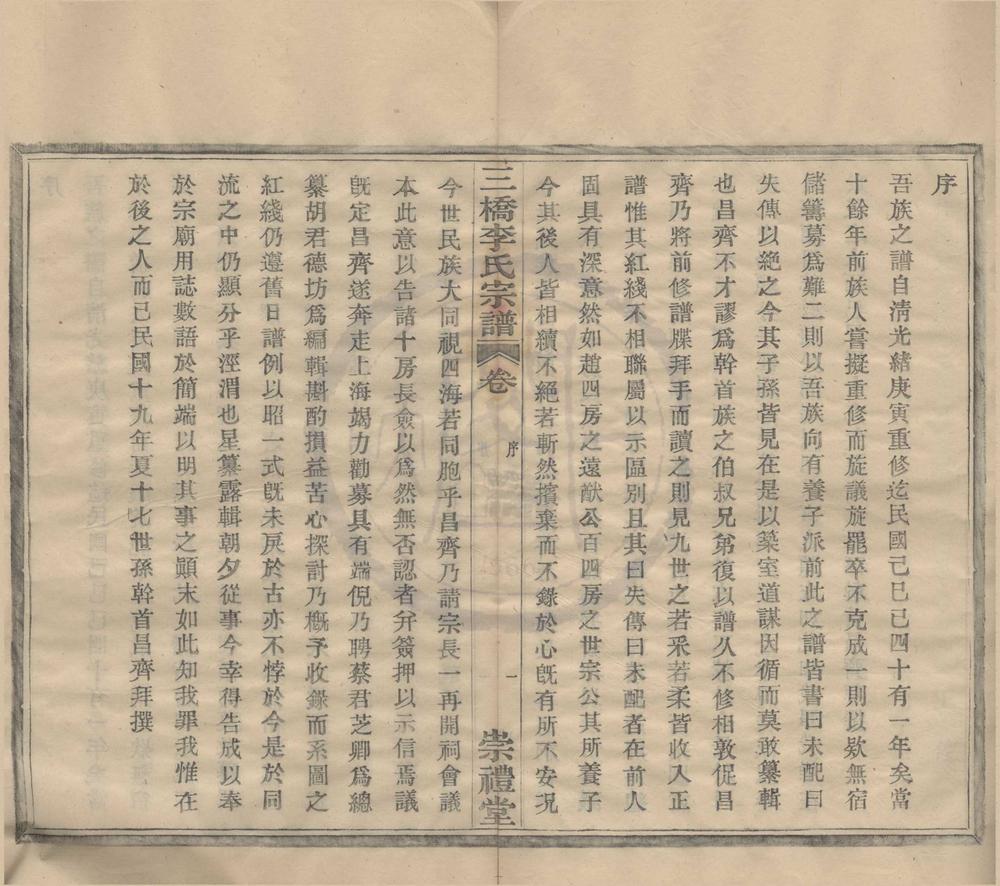 序
吾族之譜自清光緒庚寅重修迄民國己巳已四十有一年矣當
十餘年前族人嘗擬重修而旋議旋罷卒不克成一則以欵無宿
儲籌募爲難二則以吾族向有養子派前此之譜皆書曰未配曰
失傳以絶之今其子孫皆見在是以築室道謀因循而莫敢纂輯
也昌齊不才謬爲幹首族之伯叔兄弟復以譜久不修相敦促昌
齊乃將前修譜牒拜手而讀之則見九世之若釆若柔皆收入正
譜惟其紅綫不相聯屬以示區別且其曰失傳曰未配者在前人
固具有深意然如趙四房之遠猷公百四房之世宗公其所養子
今其後人皆相續不絕若斬然擯棄而不錄於心旣有所不安况
三橋李氏宗譜 卷 序 一 崇禮堂
今世民族大同視四海若同胞乎昌齊乃請宗長一再開祠會議
本此意以告諸十房長僉以爲然無否認者分簽押以示信焉議
旣定昌齊遂奔走上海竭力勸募具有端倪乃聘蔡君芝卿爲總
纂胡君德坊爲編輯斟酌損益苦心探討乃概予收錄而系圖之
紅綫仍遵舊日譜例以昭一式旣未戾於古亦不悖於今是於同
流之中仍顯分乎涇渭也星纂露輯朝夕從事今幸得告成以奉
於宗廟用誌數語於簡端以明其事之顚末如此知我罪我惟在
於後之人而已民國十九年夏十七世孫幹首昌齊拜撰